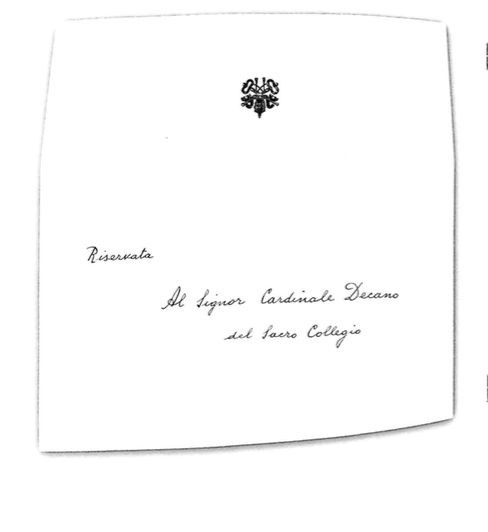 Riservata
Al Signor Cardinale Decano
del Sacro Collegio